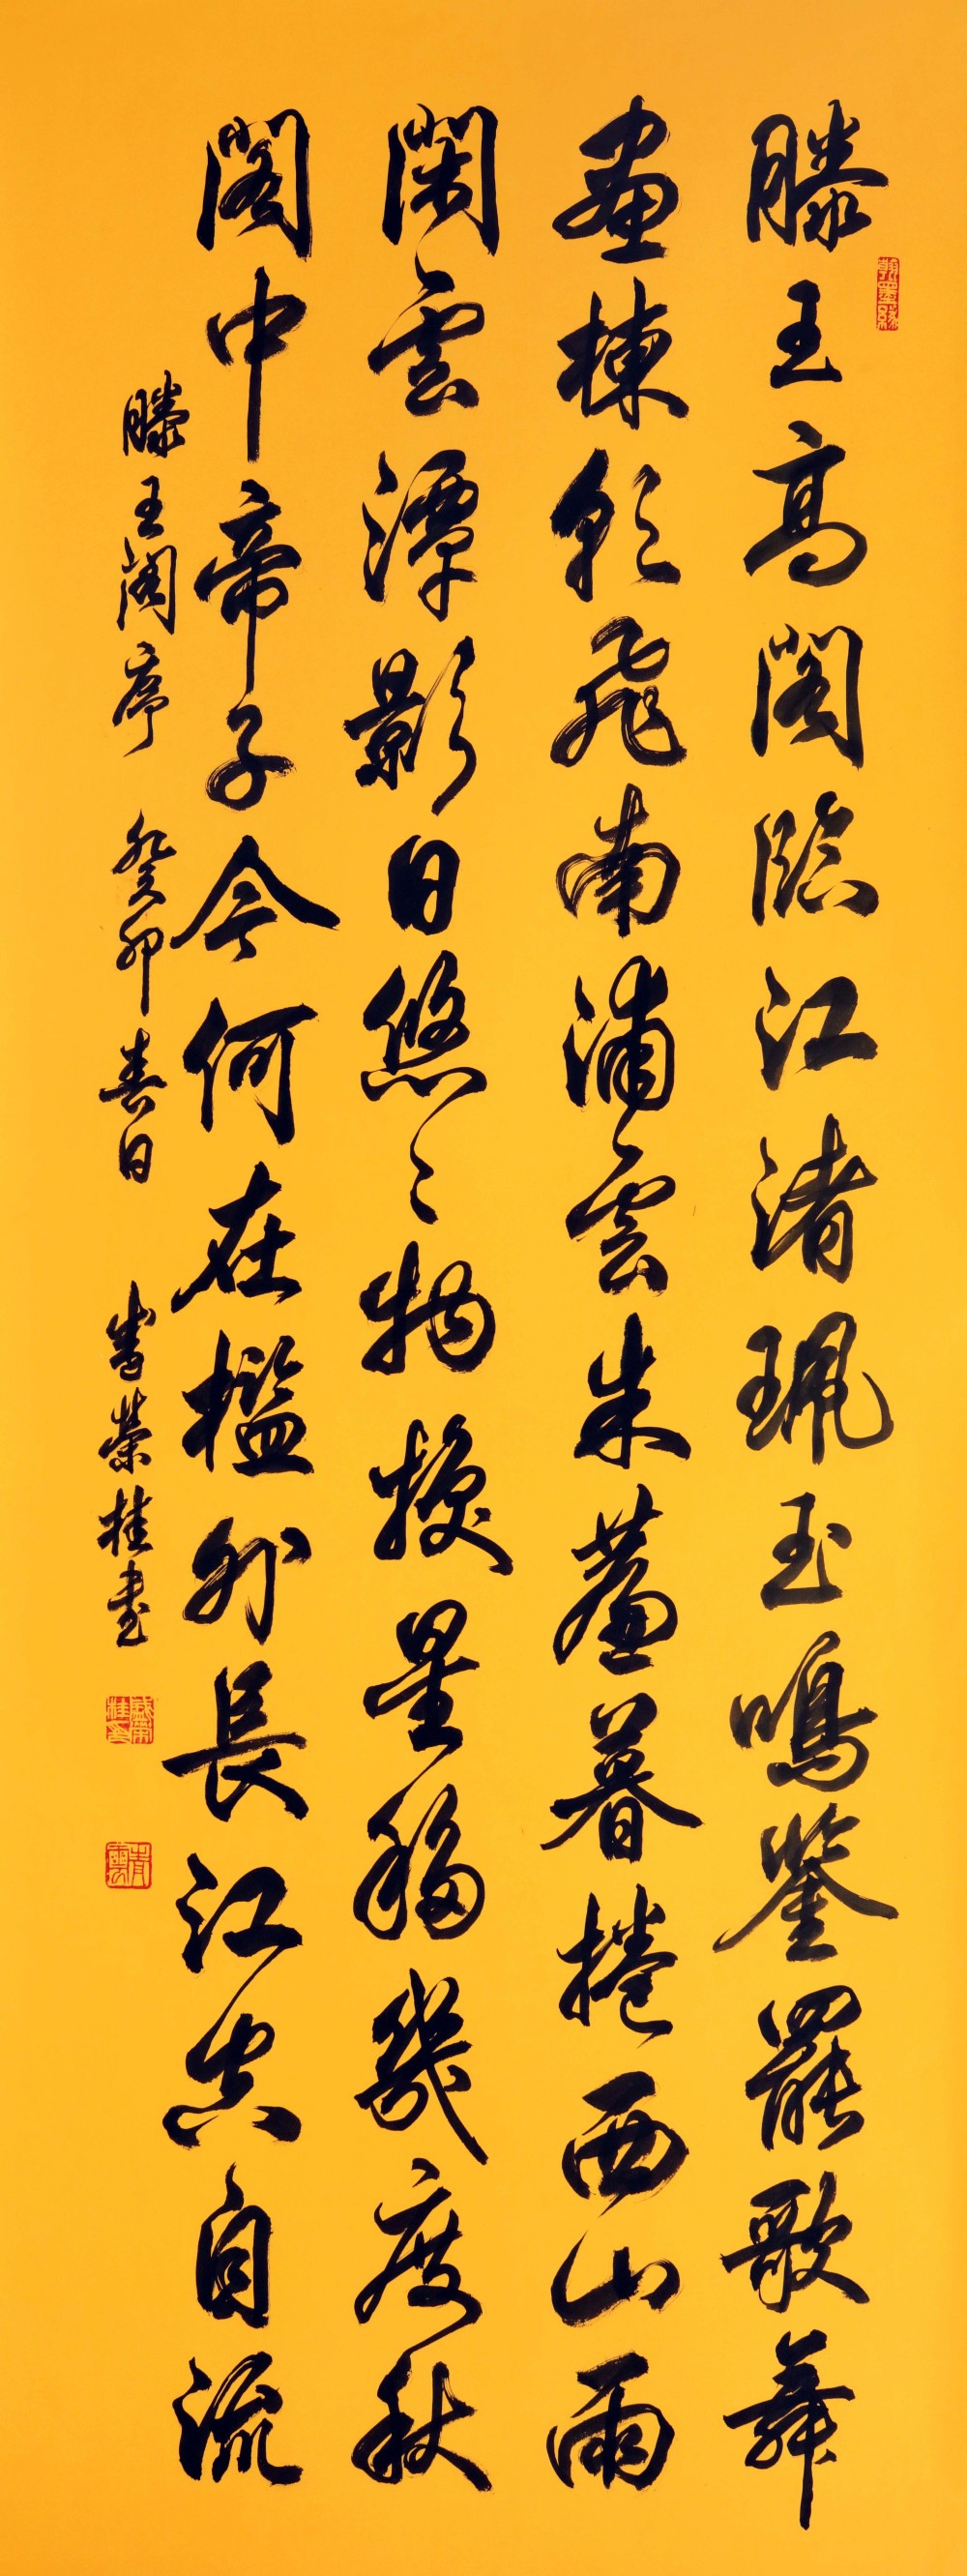 翰墨緣
滕王高閣臨江渚珮玉鳴鑾罷歌舞
畫棟朝飛南浦雲朱簾暮捲西山雨
閑雲潭影日悠々物換星移幾度秋
閣中帝子今何在檻外長江空自流
滕王閣序 癸卯春日 榮桂書
青雲